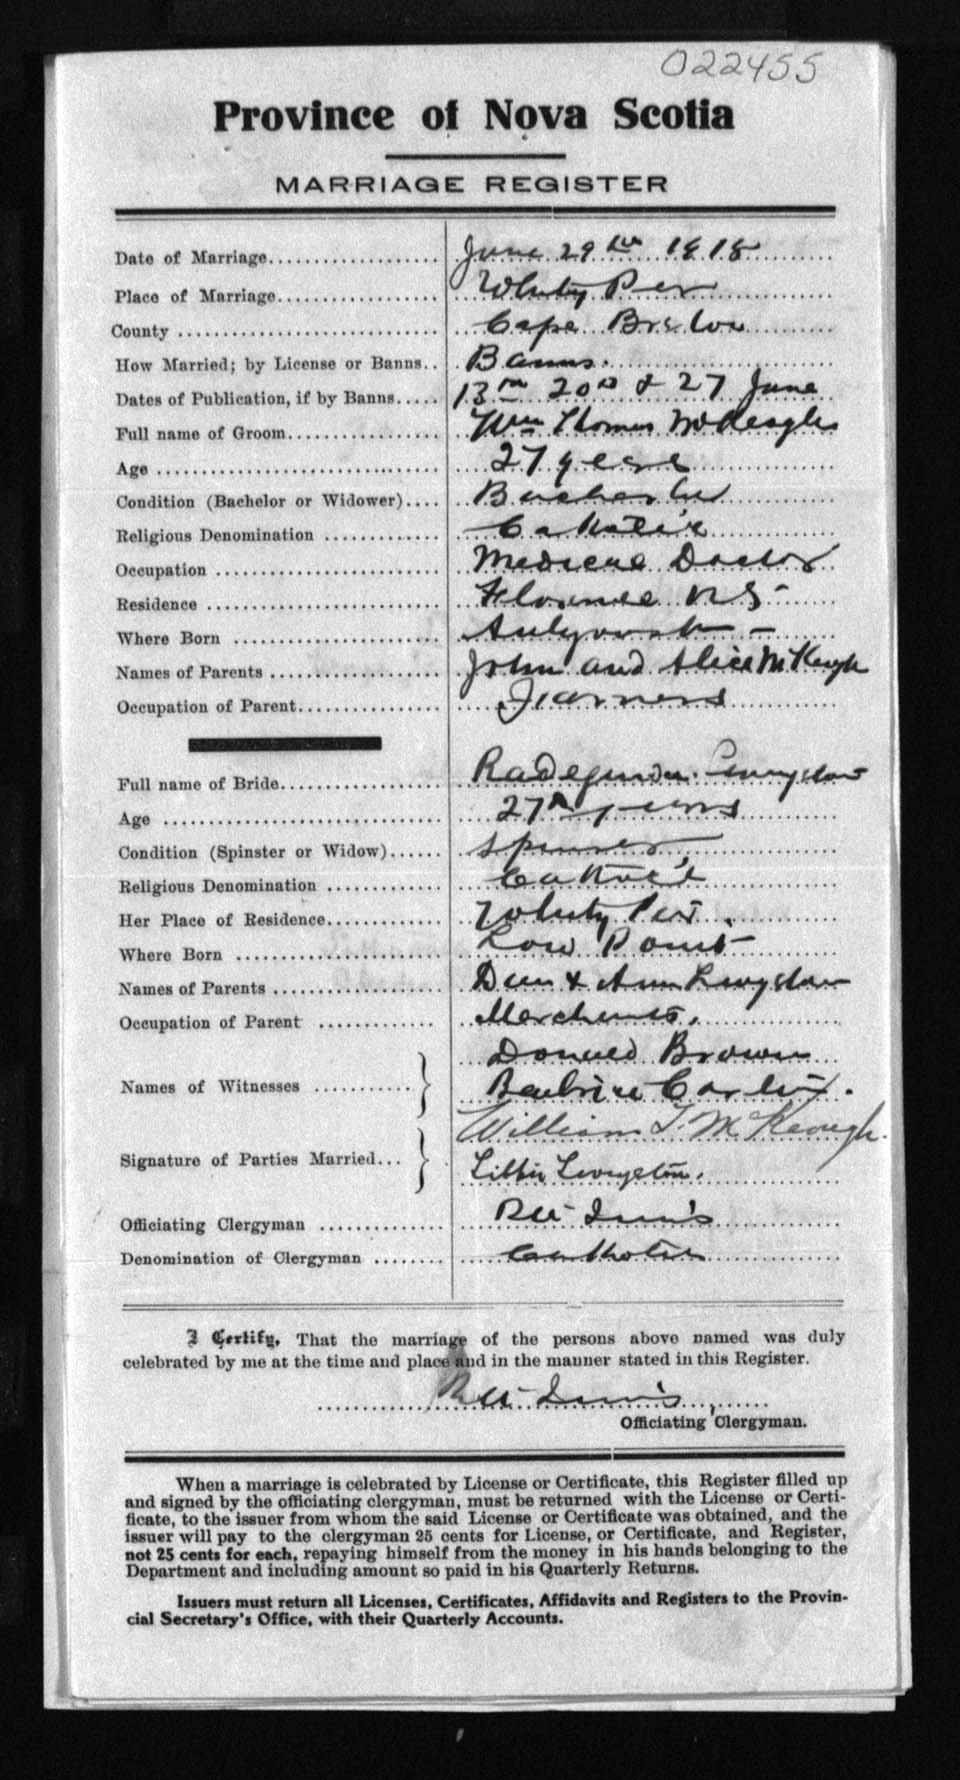 022455
Province of Nova Scotia
MARRIAGE REGISTER
Date of Marriage June 29th 1918
Place of Marriage Whitny Pier
County Cape Breton
How Married; by License or Banns Banns.
Dates of Publication, if by Banns 13th 20th & 27 June
Full name of Groom Wm Thomas McKeough
Age 27 years
Condition (Bachelor or Widower) Bachelor
Religious Denomination Catholic
Occupation Medical Doctor
Residence Florence N S
Where Born
Names of Parents John and Alice McKeogh
Occupation of Parent Farmers
Full name of Bride Livingston
Age 27 years
Condition (Spinster or Widow) Spinster
Religious Denomination Catholic
Her Place of Residence Whitny Pier
Where Born Low Point
Names of Parents Dan & Ann Livingston
Occupation of Parent Merchants,
Donald Brown
Names of Witnesses
Beatrice
William T. McKeough.
Signature of Parties Married
Libbie Livingston.
Officiating Clergyman
Denomination of Clergyman Catholic
I Certify, That the marriage of the persons above named was duly
celebrated by me at the time and place and in the manner stated in this Register.
Officiating Clergyman.
When a marriage is celebrated by License or Certificate, this Register filled up
and signed by the officiating clergyman, must be returned with the License or Certi-
ficate, to the issuer from whom the said License or Certificate was obtained, and the
issuer will pay to the clergyman 25 cents for License, or Certificate, and Register,
not 25 cents for each, repaying himself from the money in his hands belonging to the
Department and including amount so paid in his Quarterly Returns.
Issuers must return all Licenses, Certificates, Affidavits and Registers to the Provin-
cial Secretary's Office, with their Quarterly Accounts.